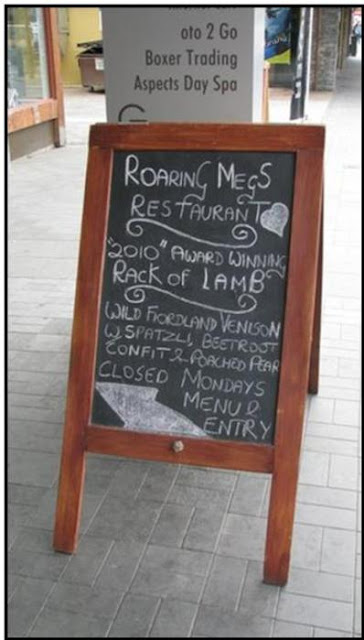 oto 2 Go
Boxer Trading
Aspects Day Spa
ROARING MEGS
RESTAURANT
"2010" AWARD WINNING
RACK OF LAMB
WILD FIORDLAND VENISON
W SPATZLI, BEETROOT
CONFIT & POACHED PEAR
CLOSED MONDAYS
MENU &
ENTRY